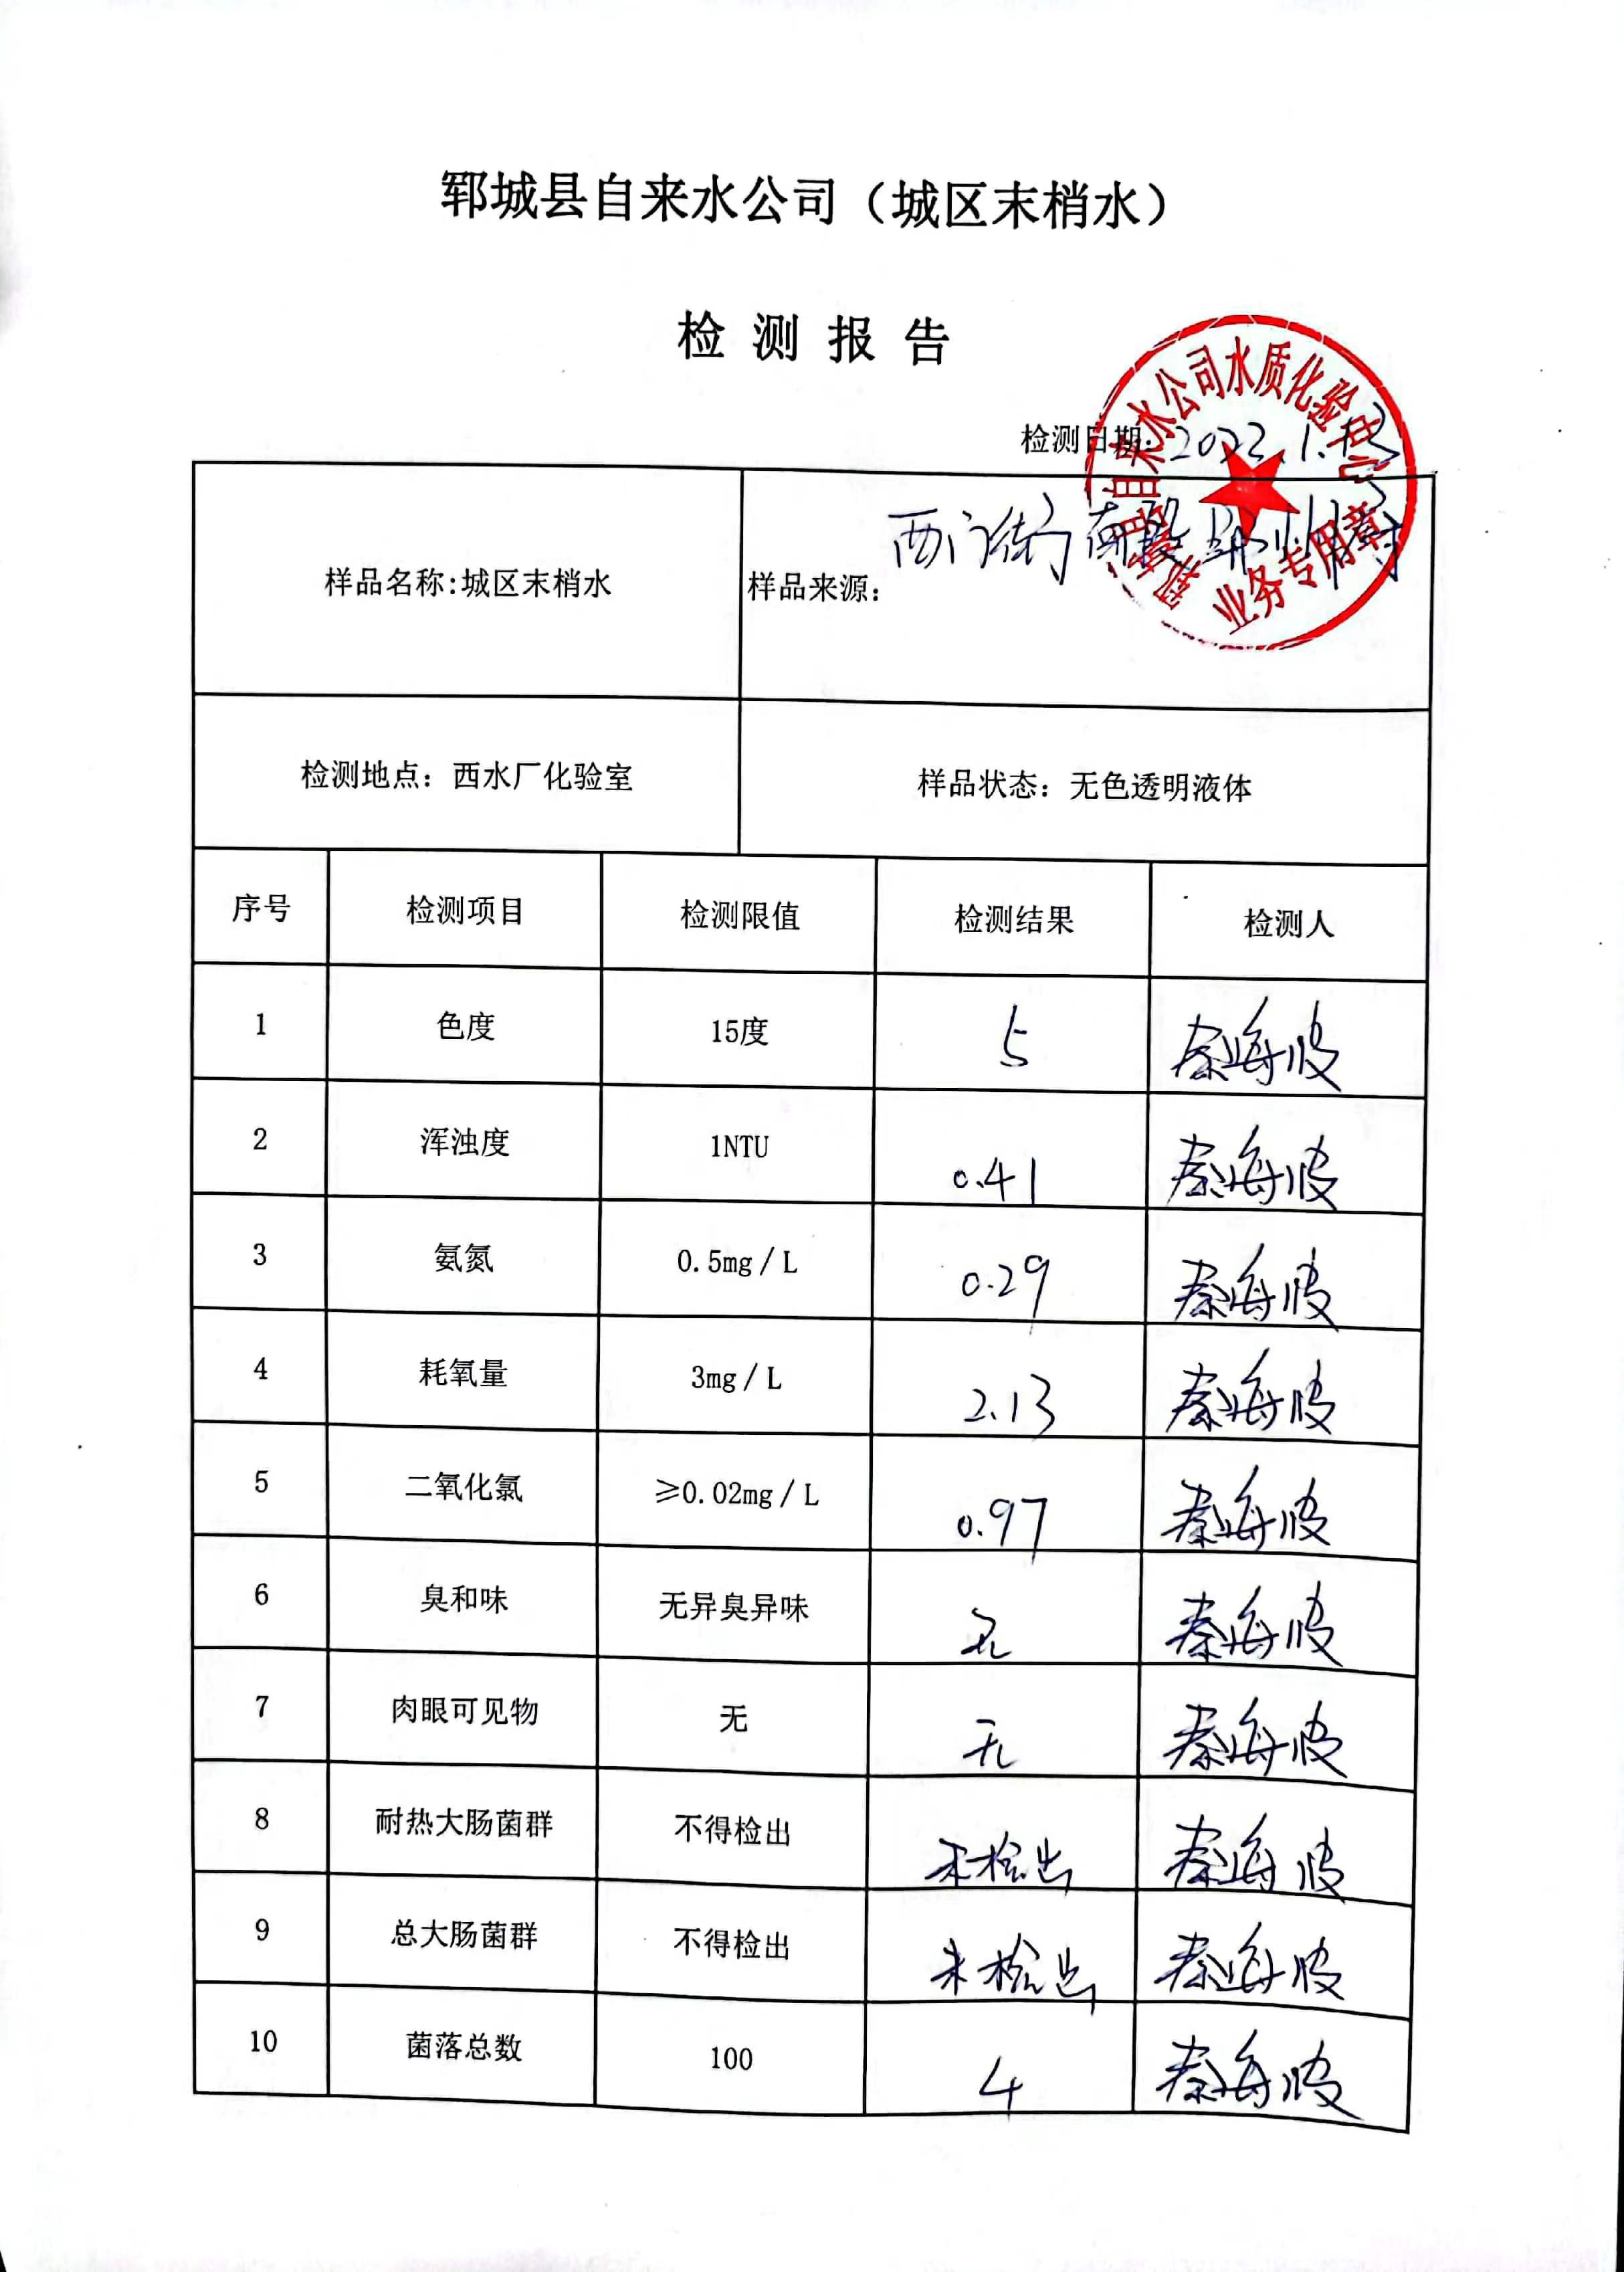 郓城县自来水公司（城区末梢水）
检测报告
检测日期：2023.1.13
样品名称:城区末梢水
样品来源： 西门街南段
检测地点：西水厂化验室
样品状态：无色透明液体
序号 检测项目 检测限值 检测结果 检测人
1 色度 15度 5 秦海波
2 浑浊度 1NTU 0.41 秦海波
3 氨氮 0.5mg/L 0.29 秦海波
4 耗氧量 3mg/L 2.13 秦海波
5 二氧化氯 ≥0.02mg/L 0.97 秦海波
6 臭和味 无异臭异味 无 秦海波
7 肉眼可见物 无 无 秦海波
8 耐热大肠菌群 不得检出 未检出 秦海波
9 总大肠菌群 不得检出 未检出 秦海波
10 菌落总数 100 4 秦海波
郓城县自来水公司水质化验中心
业务专用章